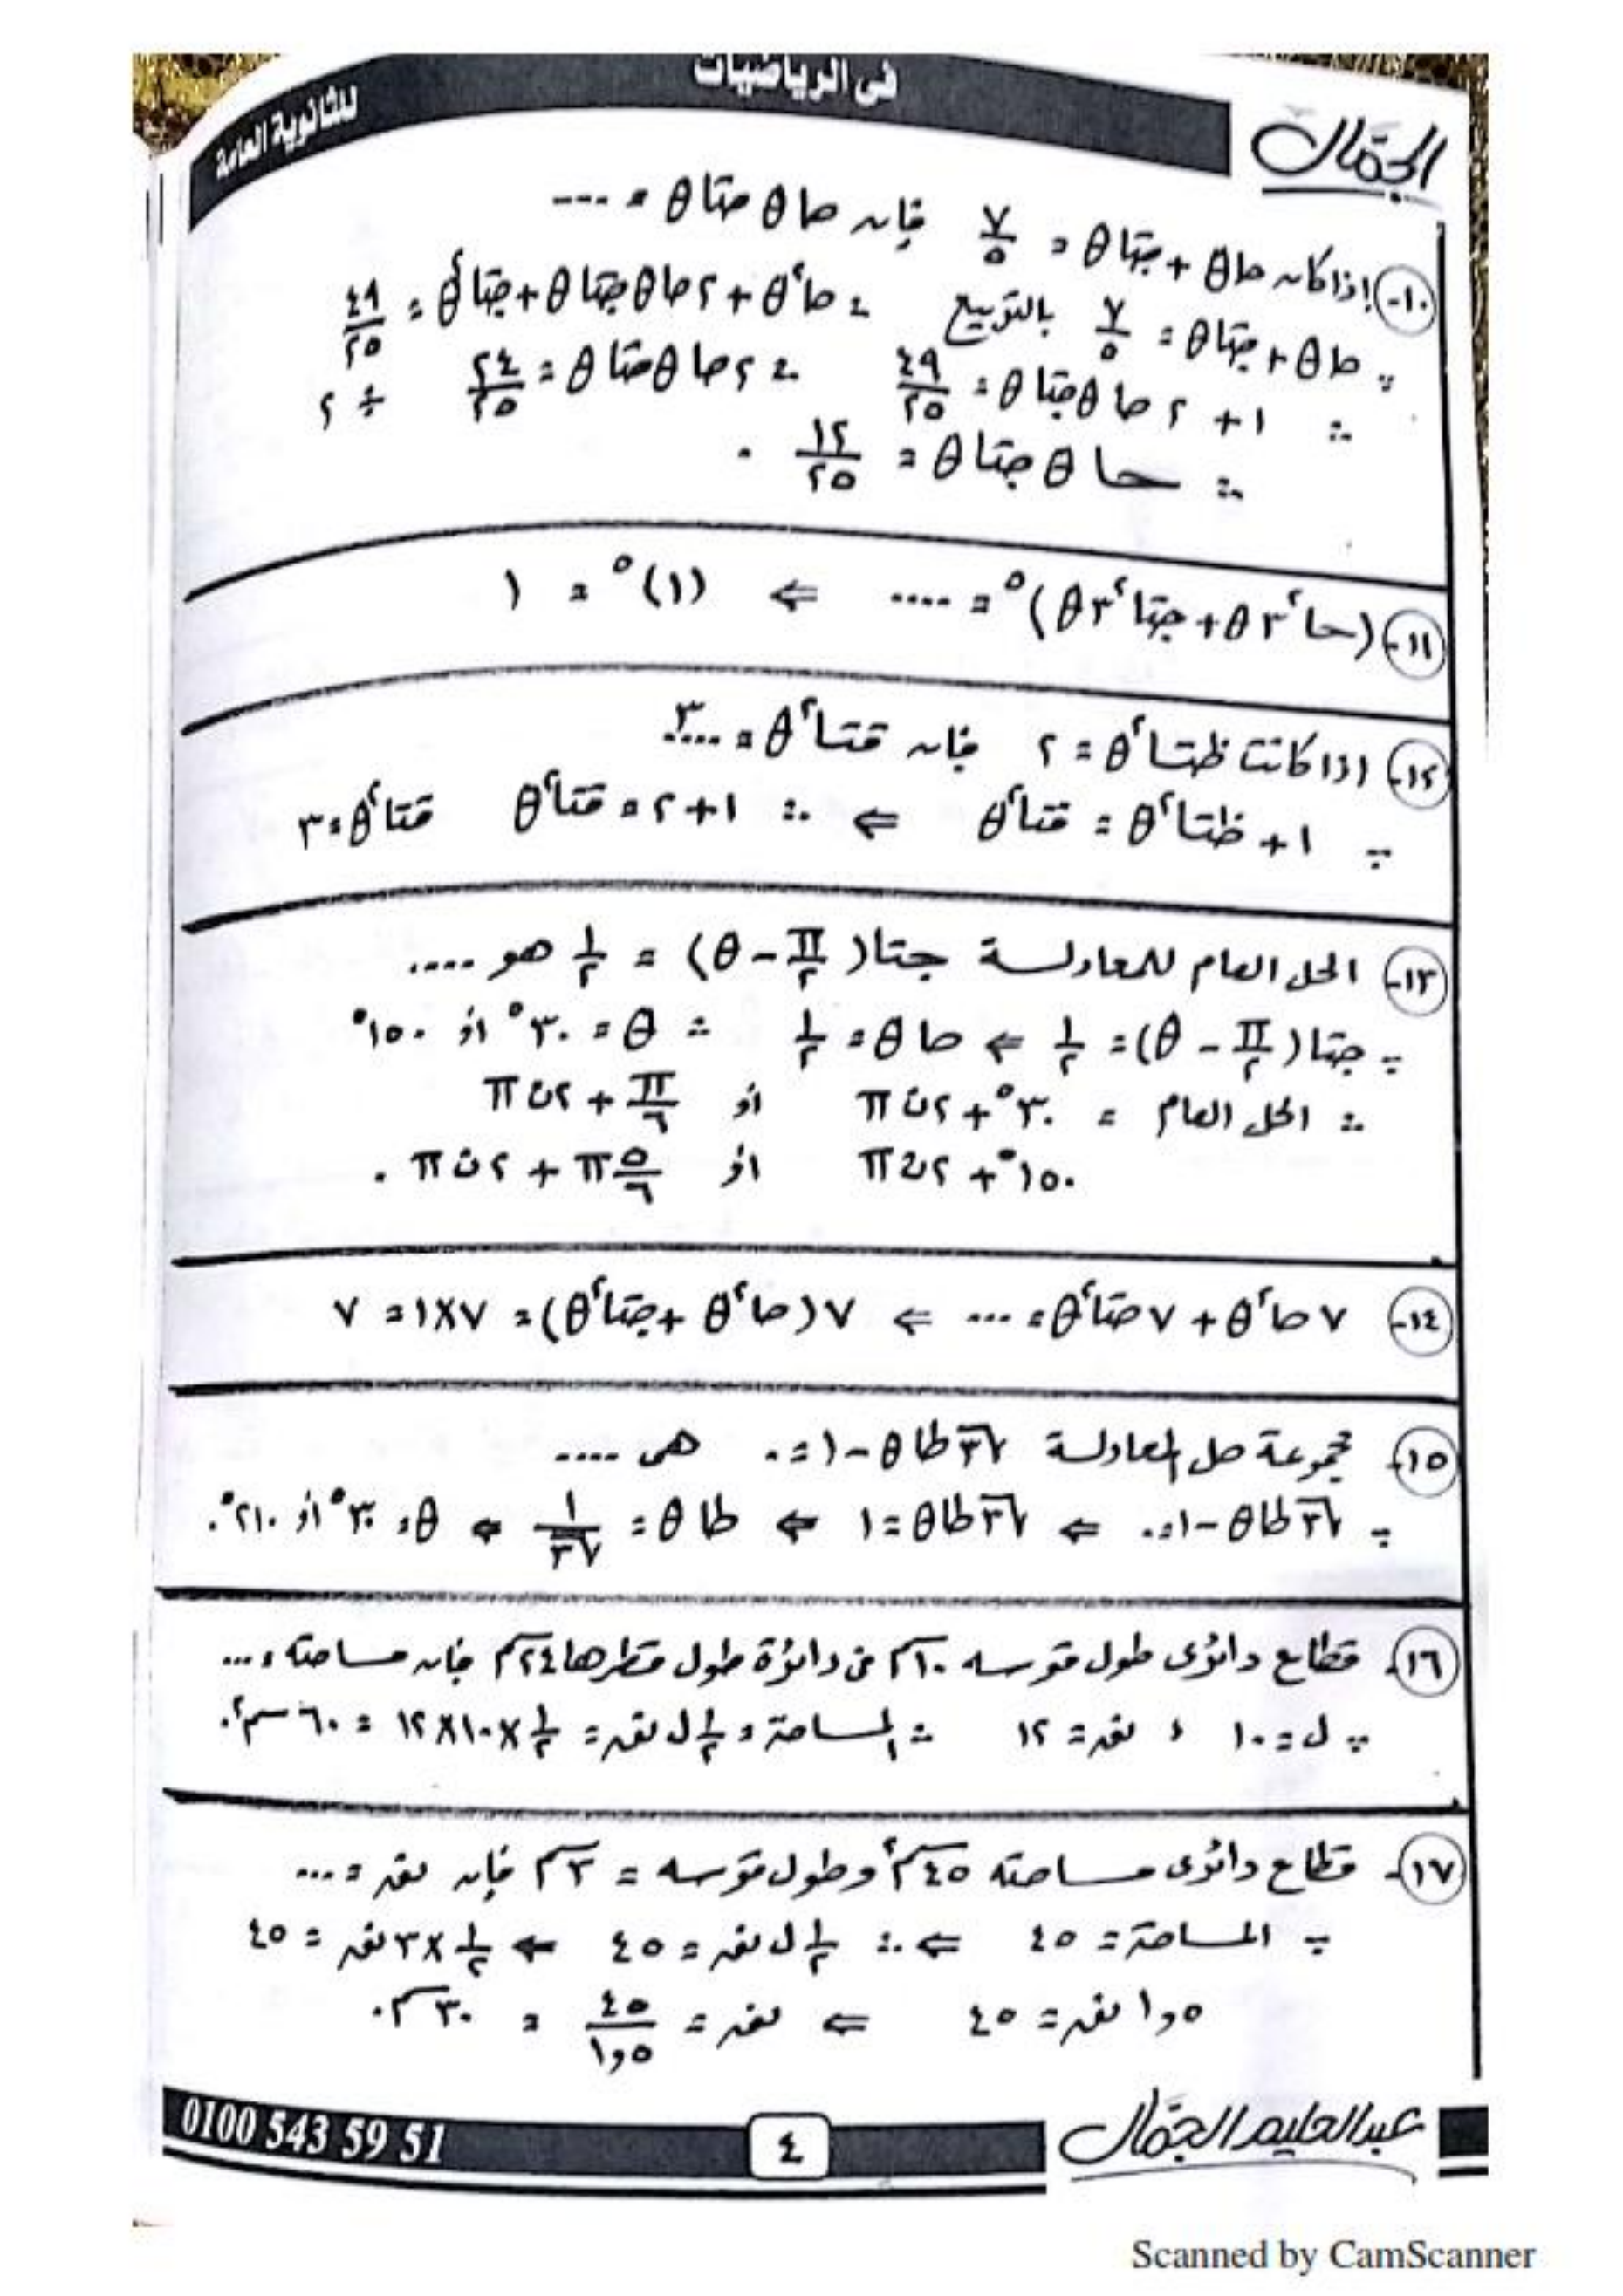 فى الرياضيات
للثانوية العامة
الجمال
١٠- إذا كان حاθ + جتاθ = ٧/٥ فإن حاθ جتاθ = ...
∵ حاθ + جتاθ = ٧/٥ بالتربيع ∴ حا²θ + ٢حاθ جتاθ + جتا²θ = ٤٩/٢٥
∴ ١ + ٢حاθ جتاθ = ٤٩/٢٥ ∴ ٢حاθ جتاθ = ٢٤/٢٥ ÷ ٢
∴ حاθ جتاθ = ١٢/٢٥ .
١١- (حا²٣θ + جتا²٣θ)⁵ = .... ⇐ (١)⁵ = ١
١٢- إذا كانت ظتا²θ = ٢ فإن قتا²θ = ..٣..
∵ ١ + ظتا²θ = قتا²θ ⇐ ∴ ١+٢ = قتا²θ قتا²θ = ٣
١٣- الحل العام للمعادلة جتا(π/٢ - θ) = ١/٢ هو ....
∵ جتا(π/٢ - θ) = ١/٢ ⇐ حاθ = ١/٢ ∴ θ = ٣٠° أو ١٥٠°
∴ الحل العام = ٣٠° + ٢نπ أو π/٦ + ٢نπ
١٥٠° + ٢نπ أو ٥/٦π + ٢نπ .
١٤- ٧حا²θ + ٧جتا²θ = ... ⇐ ٧(حا²θ + جتا²θ) = ٧×١ = ٧
١٥- مجموعة حل المعادلة √٣ طاθ - ١ = ٠ هى ....
∵ √٣ طاθ - ١ = ٠ ⇐ √٣ طاθ = ١ ⇐ طاθ = ١/√٣ ⇐ θ = ٣٠° أو ٢١٠°.
١٦- قطاع دائرى طول قوسه ١٠سم من دائرة طول قطرها ٢٤سم فإن مساحته = ...
∵ ل = ١٠ ، نق = ١٢ ∴ المساحة = ١/٢ ل نق = ١/٢ × ١٠ × ١٢ = ٦٠ سم².
١٧- قطاع دائرى مساحته ٤٥سم² وطول قوسه = ٣سم فإن نق = ...
∵ المساحة = ٤٥ ⇐ ∴ ١/٢ ل نق = ٤٥ ⇐ ١/٢ × ٣ نق = ٤٥
١,٥ نق = ٤٥ ⇐ نق = ٤٥/١,٥ = ٣٠سم.
عبدالحليم الجمال
٤
0100 543 59 51
Scanned by CamScanner